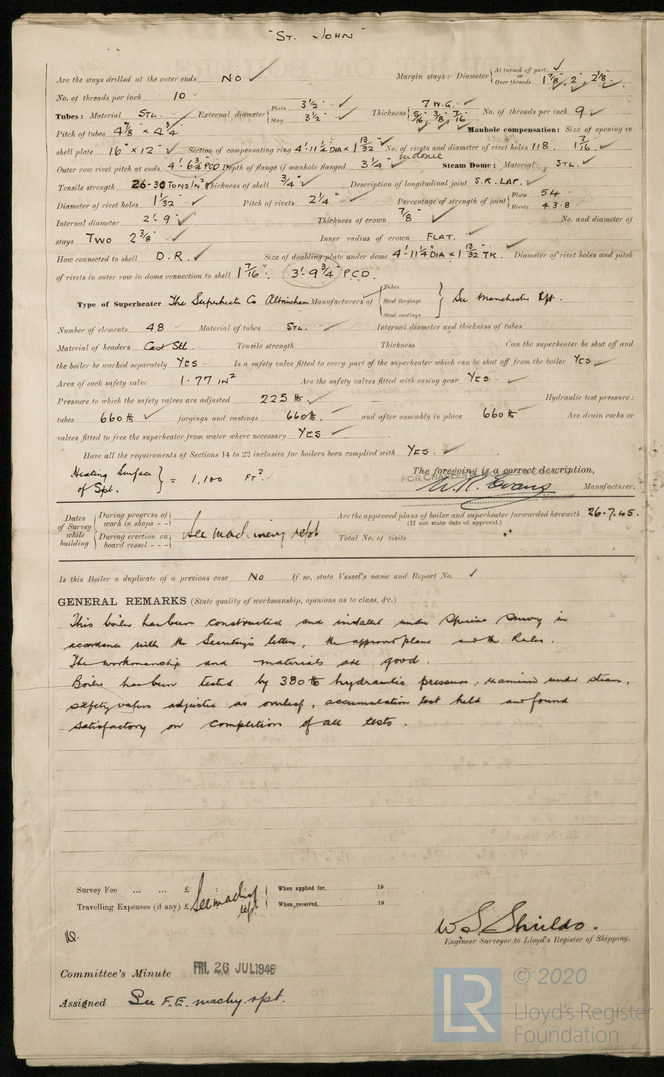 "ST. JOHN"
Are the stays drilled at the outer ends NO ✓ Margin stays: Diameter { At turned off part, or Over threads 1 7/8", 2", 2 1/8" ✓
No. of threads per inch 10
Tubes: Material STL. ✓ External diameter { Plain 3 1/2" ✓ Stay 3 1/2" ✓ Thickness { 7 W.G. ✓ 5/16, 3/8, 7/16 ✓ No. of threads per inch 9 ✓
Pitch of tubes 4 7/8" × 4 3/4" Manhole compensation: Size of opening in
shell plate 16" × 12" ✓ Section of compensating ring 4'-11 1/4" DIA × 1 13/32" ✓ No. of rivets and diameter of rivet holes 118. 1 7/16" ✓
Outer row rivet pitch at ends 4'-6 3/4" PCD Depth of flange if manhole flanged 3 1/4" ✓ in dome Steam Dome: Material STL. ✓
Tensile strength 26-30 TONS/IN² Thickness of shell 3/4" ✓ Description of longitudinal joint S.R. LAP. ✓
Diameter of rivet holes 1 1/32" ✓ Pitch of rivets 2 1/4" ✓ Percentage of strength of joint { Plate 54 Rivets 43.8
Internal diameter 2'-9" ✓ Thickness of crown 7/8" ✓ No. and diameter of
stays TWO 2 3/8" ✓ Inner radius of crown FLAT. ✓
How connected to shell D.R. ✓ Size of doubling plate under dome 4'-11 1/4" DIA × 1 13/32" TK. Diameter of rivet holes and pitch
of rivets in outer row in dome connection to shell 1 7/16". 3'-9 3/4" P.C.D.
Type of Superheater The Superheater Co Altrincham Manufacturers of { Tubes Steel forgings Steel castings } See Manchester Rpt.
Number of elements 48 Material of tubes STL. Internal diameter and thickness of tubes
Material of headers Cast Stl. Tensile strength Thickness Can the superheater be shut off and
the boiler be worked separately YES ✓ Is a safety valve fitted to every part of the superheater which can be shut off from the boiler YES ✓
Area of each safety valve 1.77 IN² Are the safety valves fitted with easing gear YES ✓
Pressure to which the safety valves are adjusted 225 lb. ✓ Hydraulic test pressure:
tubes 660 lb ✓ forgings and castings 660 lb. and after assembly in place 660 lb Are drain cocks or
valves fitted to free the superheater from water where necessary YES ✓
Have all the requirements of Sections 14 to 22 inclusive for boilers been complied with YES ✓
Heating Surface of Spt. } = 1,100 FT². ✓ The foregoing is a correct description,
W. R. Evans Manufacturer.
Dates of Survey while building { During progress of work in shops - - During erection on board vessel - - - } See machinery report Are the approved plans of boiler and superheater forwarded herewith 26.7.45.
(If not state date of approval.)
Total No. of visits
Is this Boiler a duplicate of a previous case No If so, state Vessel's name and Report No. ✓
GENERAL REMARKS (State quality of workmanship, opinions as to class, &c.)
This boiler has been constructed and installed under Special Survey in
accordance with the Secretary's letters, the approved plans and the Rules.
The workmanship and materials are good.
Boiler has been tested by 380 lb hydraulic pressure, examined under steam,
safety valves adjusted as overleaf, accumulation test held and found
satisfactory on completion of all tests.
Survey Fee ... ... £ : : When applied for, 19
Travelling Expenses (if any) £ See machy rpt. When received, 19
W. S. Shields.
Engineer Surveyor to Lloyd's Register of Shipping.
Committee's Minute FRI. 26 JUL 1946
Assigned See F.E. machy. rpt.
LR © 2020
Lloyd's Register
Foundation